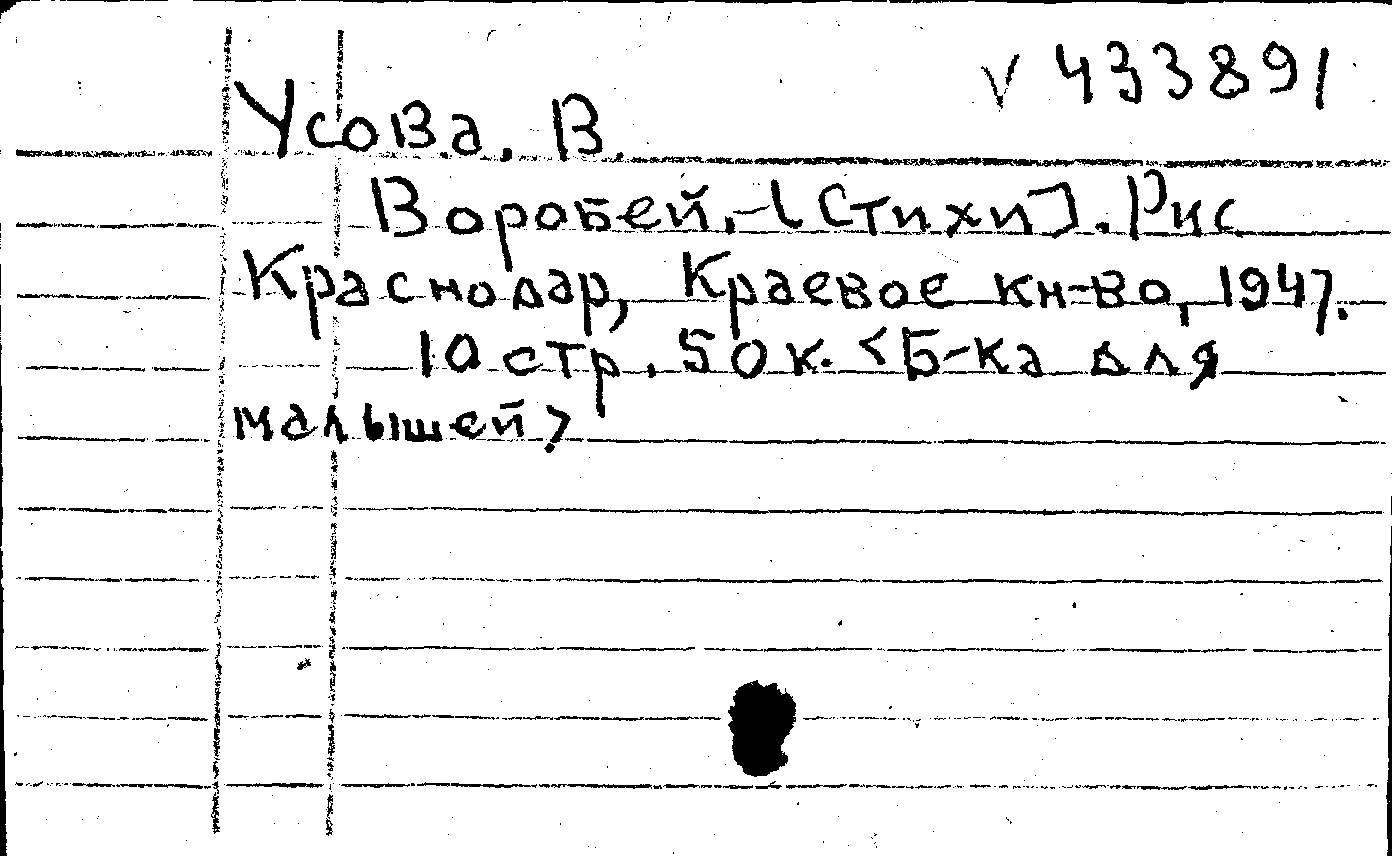 V 433891
Усова, В.
Воробей. - [Стихи]. Рис
Краснодар, Краевое кн-во, 1947.
10 стр. 50 к. <Б-ка для
малышей>